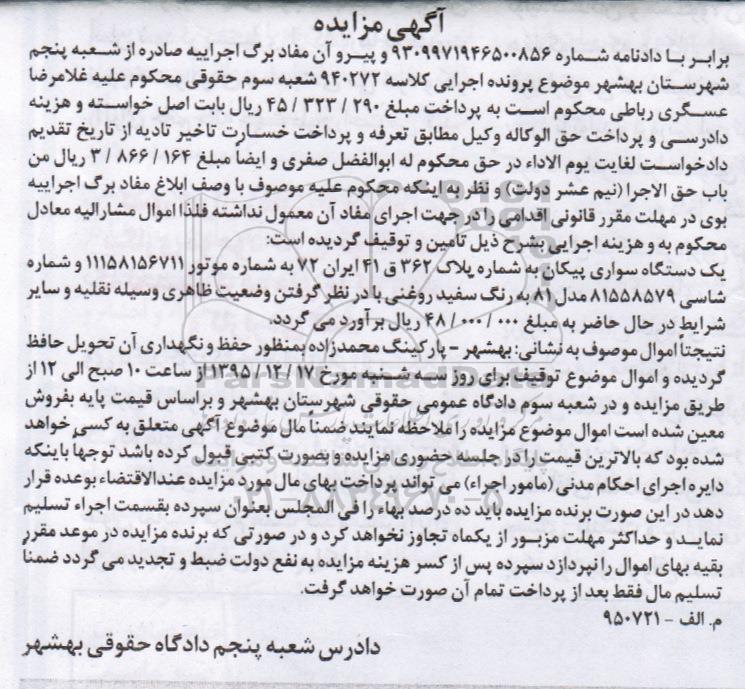 آگهی مزایده
برابر با دادنامه شماره ۹۳۰۹۹۷۱۹۴۶۵۰۰۸۵۶ و پیرو آن مفاد برگ اجراییه صادره از شعبه پنجم
شهرستان بهشهر موضوع پرونده اجرایی کلاسه ۹۴۰۲۷۲ شعبه سوم حقوقی محکوم علیه غلامرضا
عسگری رباطی محکوم است به پرداخت مبلغ ۲۹۰ / ۳۲۳ / ۴۵ ریال بابت اصل خواسته و هزینه
دادرسی و پرداخت حق الوکاله وکیل مطابق تعرفه و پرداخت خسارت تاخیر تادیه از تاریخ تقدیم
دادخواست لغایت یوم الاداء در حق محکوم له ابوالفضل صفری و ایضاً مبلغ ۱۶۴ / ۸۶۶ / ۳ ریال من
باب حق الاجرا (نیم عشر دولت) و نظر به اینکه محکوم علیه موصوف با وصف ابلاغ مفاد برگ اجراییه
بوی در مهلت مقرر قانونی اقدامی را در جهت اجرای مفاد آن معمول نداشته فلذا اموال مشارالیه معادل
محکوم به و هزینه اجرایی بشرح ذیل تامین و توقیف گردیده است:
یک دستگاه سواری پیکان به شماره پلاک ۳۶۲ ق ۴۱ ایران ۷۲ به شماره موتور ۱۱۱۵۸۱۵۶۷۱۱ و شماره
شاسی ۸۱۵۵۸۵۷۹ مدل ۸۱ به رنگ سفید روغنی با در نظر گرفتن وضعیت ظاهری وسیله نقلیه و سایر
شرایط در حال حاضر به مبلغ ۰۰۰ / ۰۰۰ / ۴۸ ریال برآورد می گردد.
نتیجتاً اموال موصوف به نشانی: بهشهر - پارکینگ محمدزاده بمنظور حفظ و نگهداری آن تحویل حافظ
گردیده و اموال موضوع توقیفا برای روز سه شنبه مورخ ۱۷ / ۱۲ / ۱۳۹۵ از ساعت ۱۰ صبح الی ۱۲ از
طریق مزایده و در شعبه سوم دادگاه عمومی حقوقی شهرستان بهشهر و براساس قیمت پایه بفروش
معین شده است اموال موضوع مزایده را ملاحظه نمایند ضمناً مال موضوع آگهی متعلق به کسی خواهد
شده بود که بالاترین قیمت را در جلسه حضوری مزایده و بصورت کتبی قبول کرده باشد توجها باینکه
دایره اجرای احکام مدنی (مامور اجراء) می تواند پرداخت بهای مال مورد مزایده عندالاقتضاء بوعده قرار
دهد در این صورت برنده مزایده باید ده درصد بهاء را فی المجلس بعنوان سپرده بقسمت اجراء تسلیم
نماید و حداکثر مهلت مزبور از یکماه تجاوز نخواهد کرد و در صورتی که برنده مزایده در موعد مقرر
بقیه بهای اموال را نپردازد سپرده پس از کسر هزینه مزایده به نفع دولت ضبط و تجدید می گردد ضمنا
تسلیم مال فقط بعد از پرداخت تمام آن صورت خواهد گرفت.
م. الف - ۹۵۰۷۲۱
دادرس شعبه پنجم دادگاه حقوقی بهشهر
ParsNamadData
۰۲۱-۸۸۳۴۹۶۷۰-۵